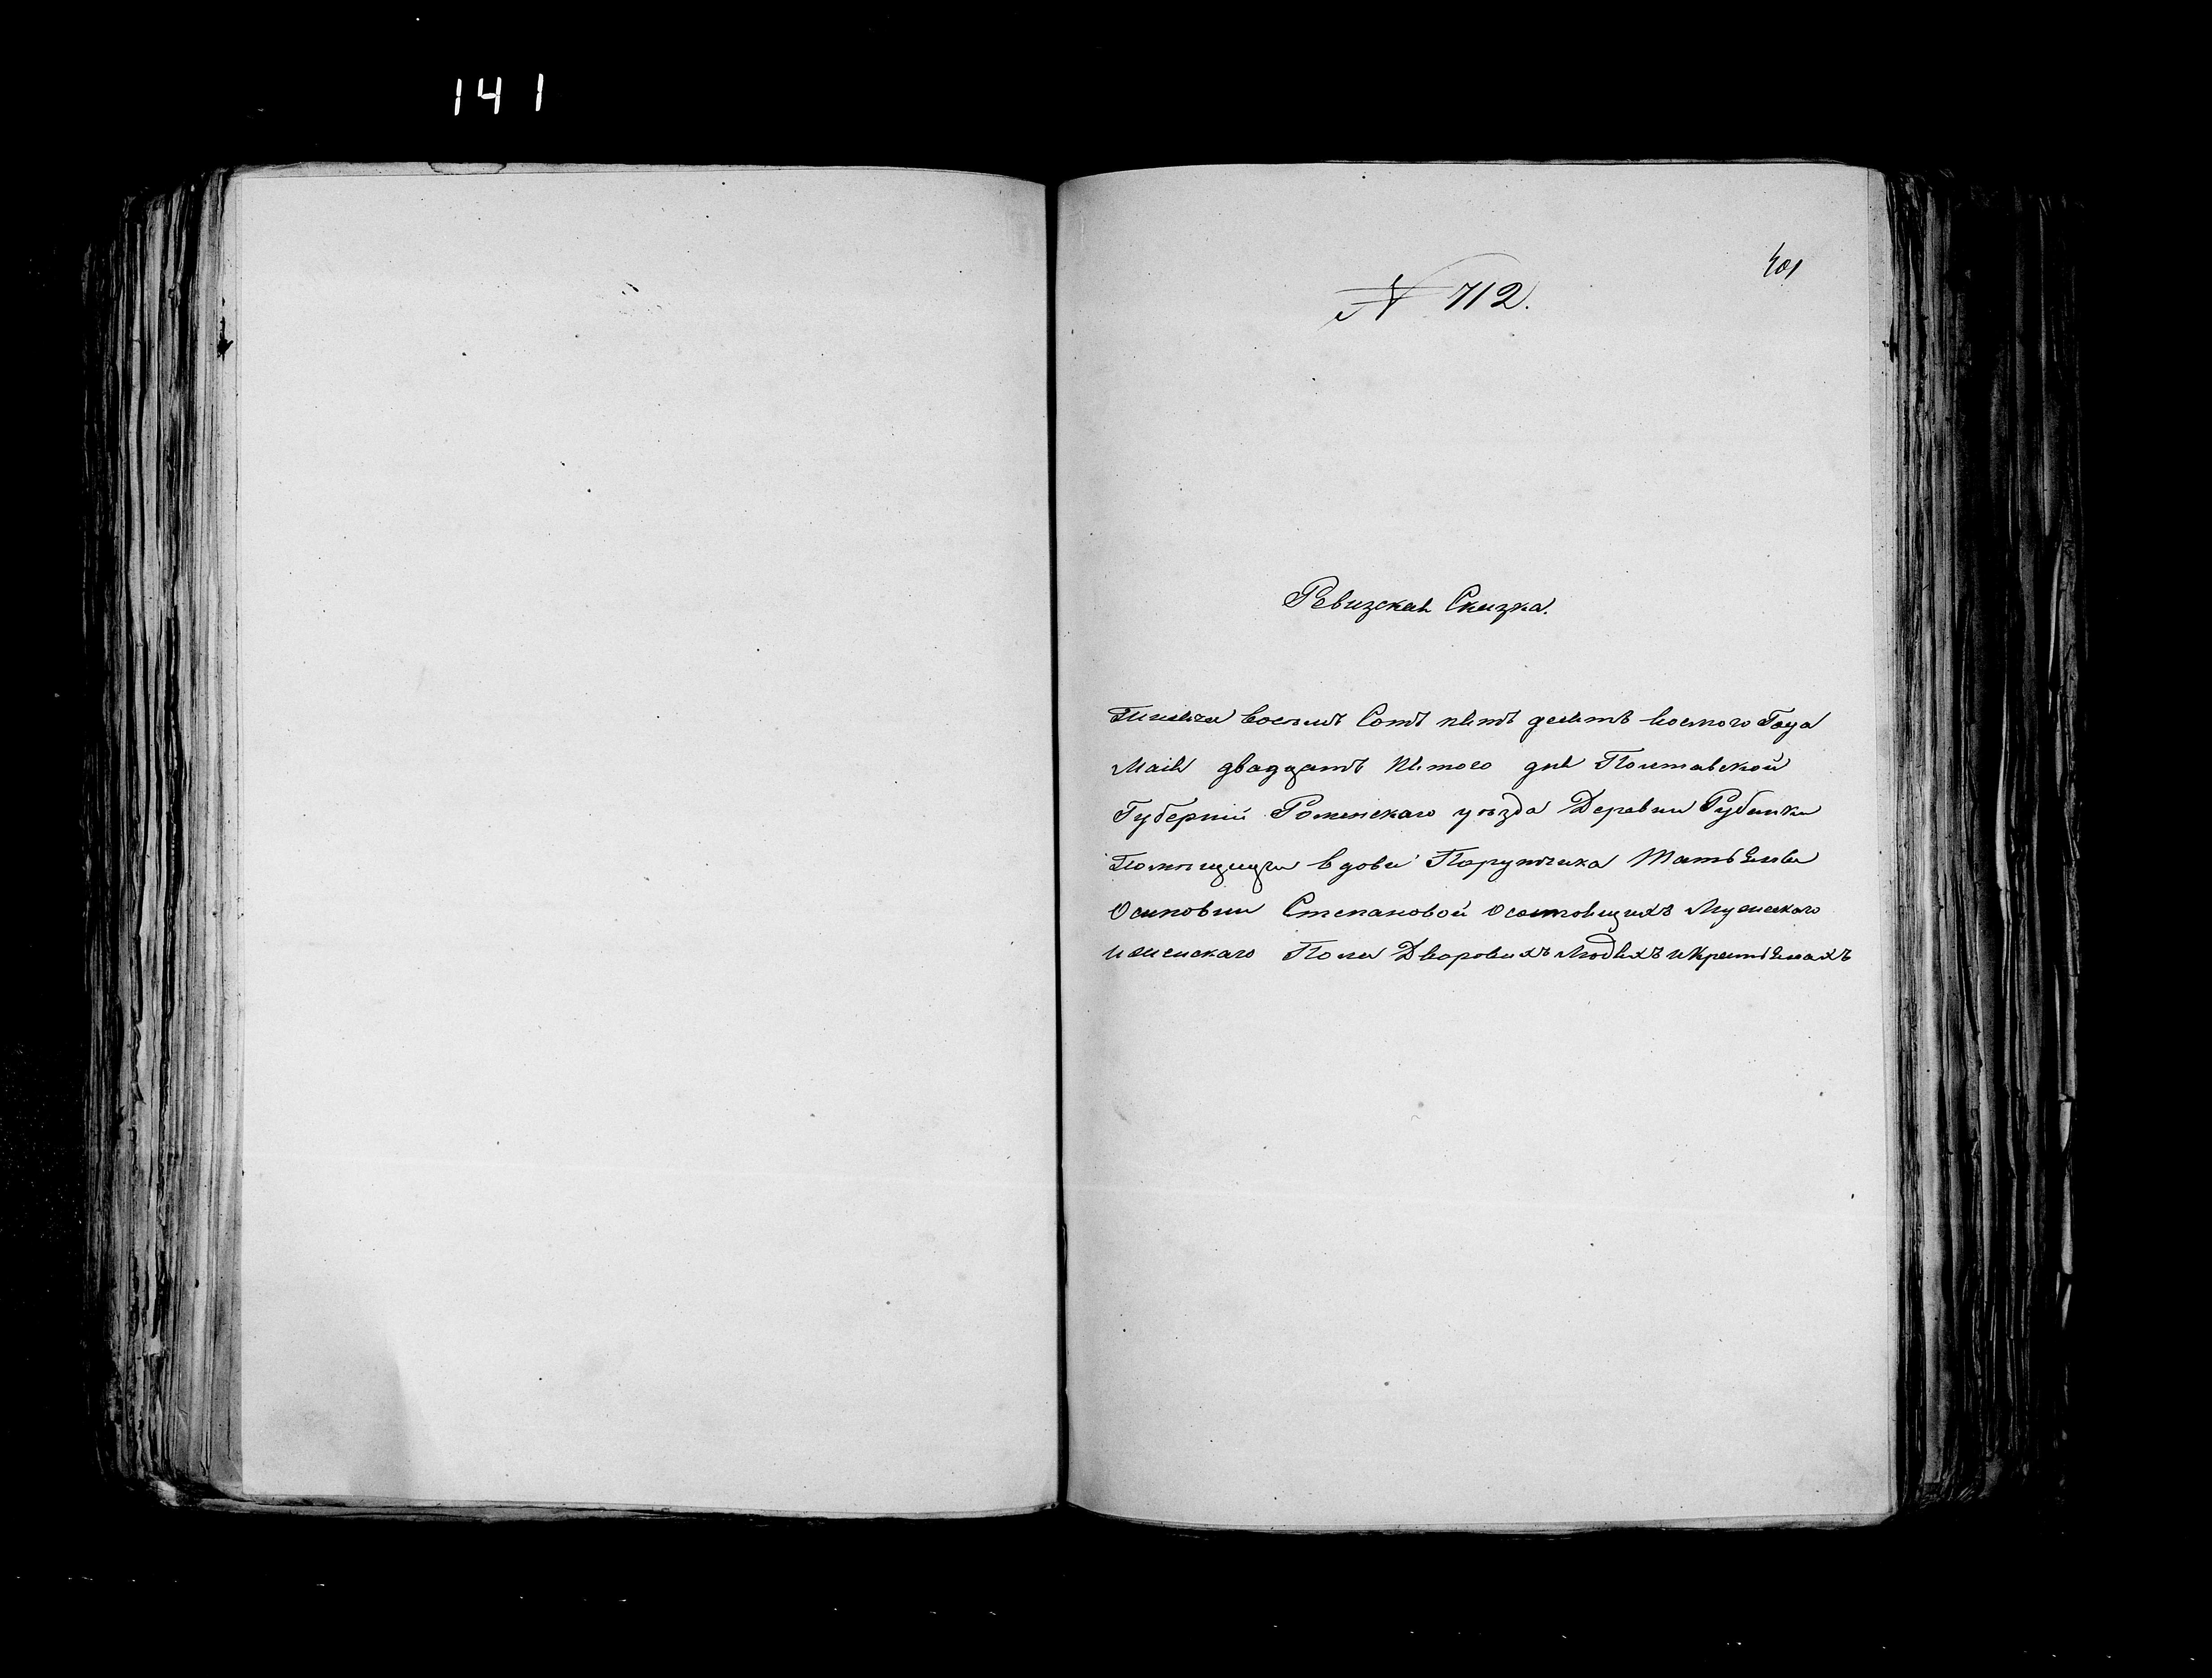 141
401
№ 712.
Ревизская Сказка.
Тисяча восемъ Сотъ пятъ десятъ восмого Года
Маія двадцатъ пятого дня Полтавской
Губерніи Роменскаго уѣзда Деревни Рубанки
Помѣщици вдови Поручика Татьяни
Осиповни Степановой о состоящихъ Мужескаго
и женскаго Пола Дворовихъ Людяхъ и Крестьянахъ